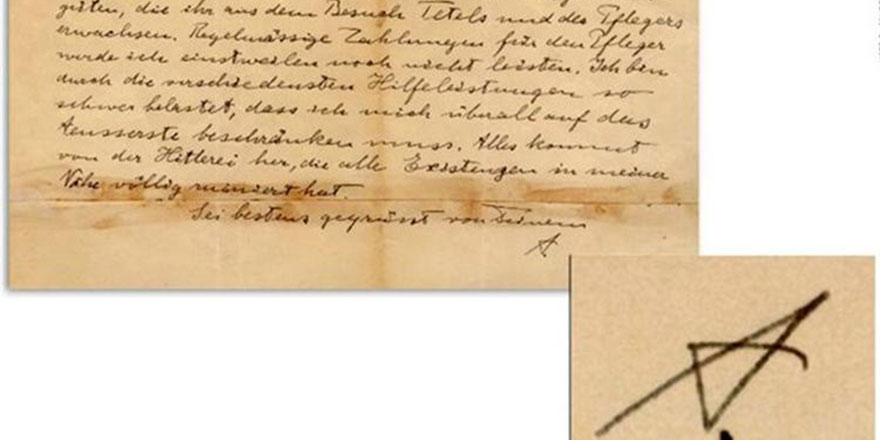 güten, die ihr aus dem Besuch Tetels und des Pflegers
erwachsen. Regelmässige Zahlungen für den Pfleger
werde ich einstweilen noch nicht leisten. Ich bin
durch die verschiedensten Hilfeleistungen so
schwer belastet, dass ich mich überall auf das
Aeusserste beschränken muss. Alles kommt
von der Hitlerei her, die alle Existenzen in meiner
Nähe völlig ruiniert hat.
Sei bestens gegrüsst von Deinem
A.
A